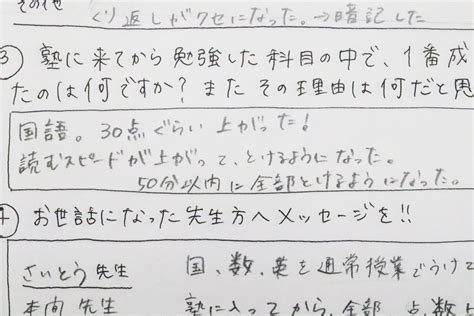 その他
くり返しがクセになった。→暗記した
③ 塾に来てから勉強した科目の中で、1番成
たのは何ですか？またその理由は何だと思
国語。30点ぐらい上がった！
読むスピードが上がって、とけるようになった。
50分以内に全部とけるようになった。
4 お世話になった先生方へメッセージを!!
さいとう先生 国、数、英を通常授業でうけて
本間 先生 塾に入ってから、全部 点、数上